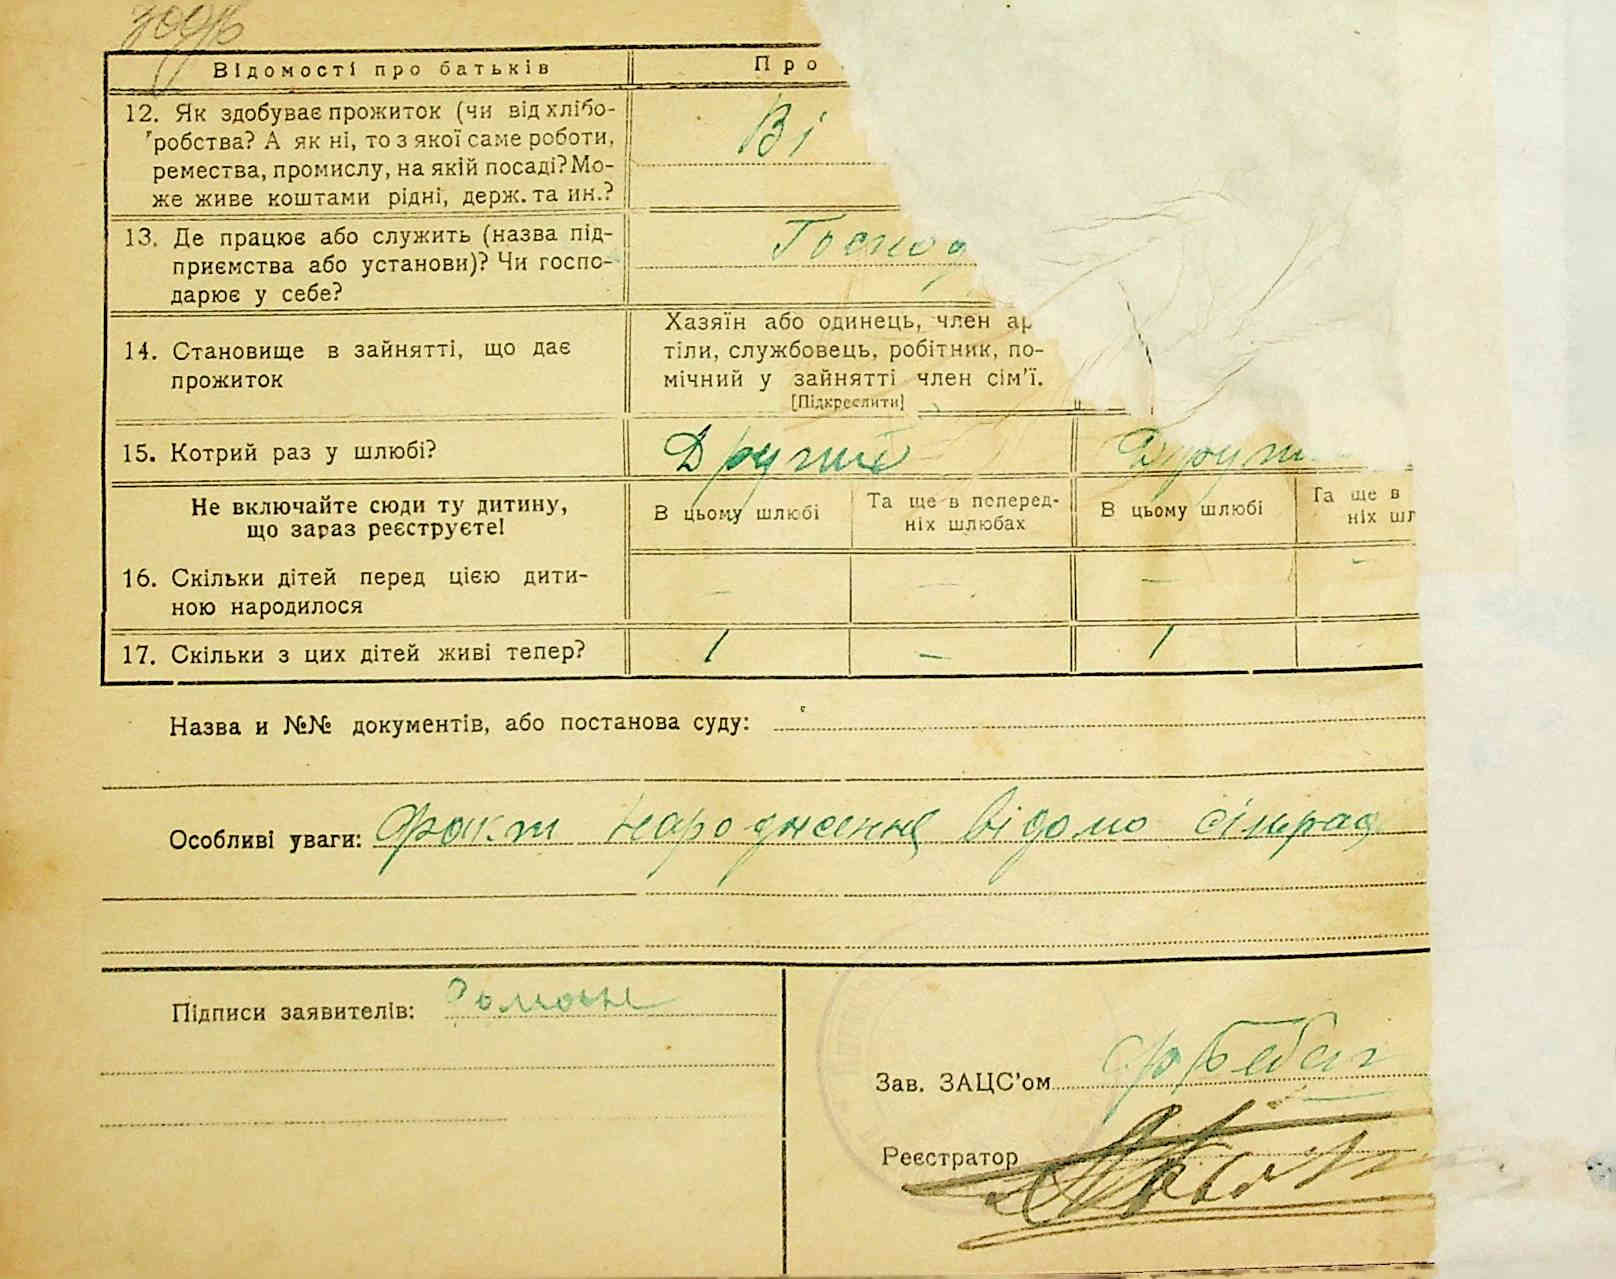 Відомості про батьків
Про
12. Як здобуває прожиток (чи від хлібо-
робства? А як ні, то з якої саме роботи,
ремества, промислу, на якій посаді? Мо-
же живе коштами рідні, держ. та ин.?
Ві
13. Де працює або служить (назва під-
приємства або установи)? Чи госпо-
дарює у себе?
Господ
14. Становище в зайнятті, що дає
прожиток
Хазяїн або одинець, член ар
тіли, службовець, робітник, по-
мічний у зайнятті член сім'ї.
[Підкреслити]
15. Котрий раз у шлюбі?
Другий
Други
Не включайте сюди ту дитину,
що зараз реєструєте!
В цьому шлюбі
Та ще в поперед-
ніх шлюбах
В цьому шлюбі
Та ще в
ніх шл
16. Скільки дітей перед цією дити-
ною народилося
– – – –
17. Скільки з цих дітей живі тепер?
1 – 1 –
Назва и №№ документів, або постанова суду:
Особливі уваги: Факт народження відомо сільрад
Підписи заявителів: Роман
Зав. ЗАЦС'ом
Реєстратор